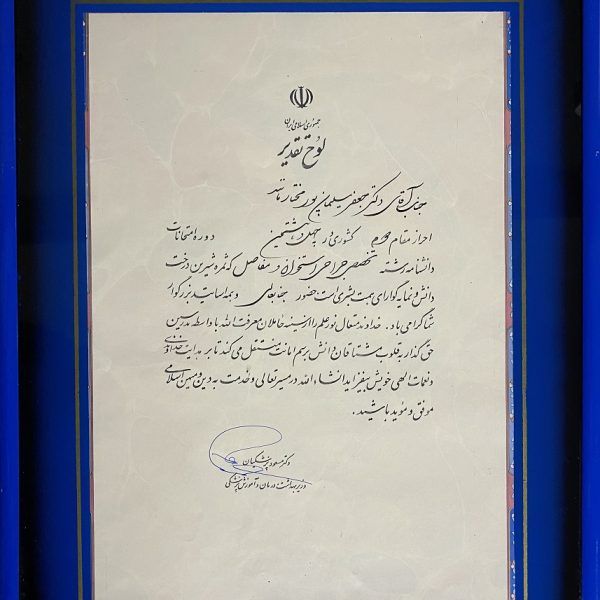 جمهوری اسلامی ایران
لوح تقدیر
جناب آقای دکتر جعفر سلیمان پور مختارماند
احراز مقام دوم کشوری در چهل و هشتمین دوره امتحانات
دانشنامه رشته تخصصی جراحی استخوان و مفاصل که ثمره شیرین درخت
دانش و نمایه گوارای همت بشری است، حضور جنابعالی و همه اساتید بزرگوار
شما گرامی باد. خداوند متعال نور علم را از سینه حاملان معرفت الله با واسطه مدرسین
حق گذار به قلوب مشتاقان دانش برسم امانت منتقل می کند تا بر هدایت خداوندی
و نعمات الهی خویش بیفزاید انشاءالله در مسیر تعالی و خدمت به دین و میهن اسلامی
موفق و موید باشید.
دکتر مسعود پزشکیان
وزیر بهداشت، درمان و آموزش پزشکی